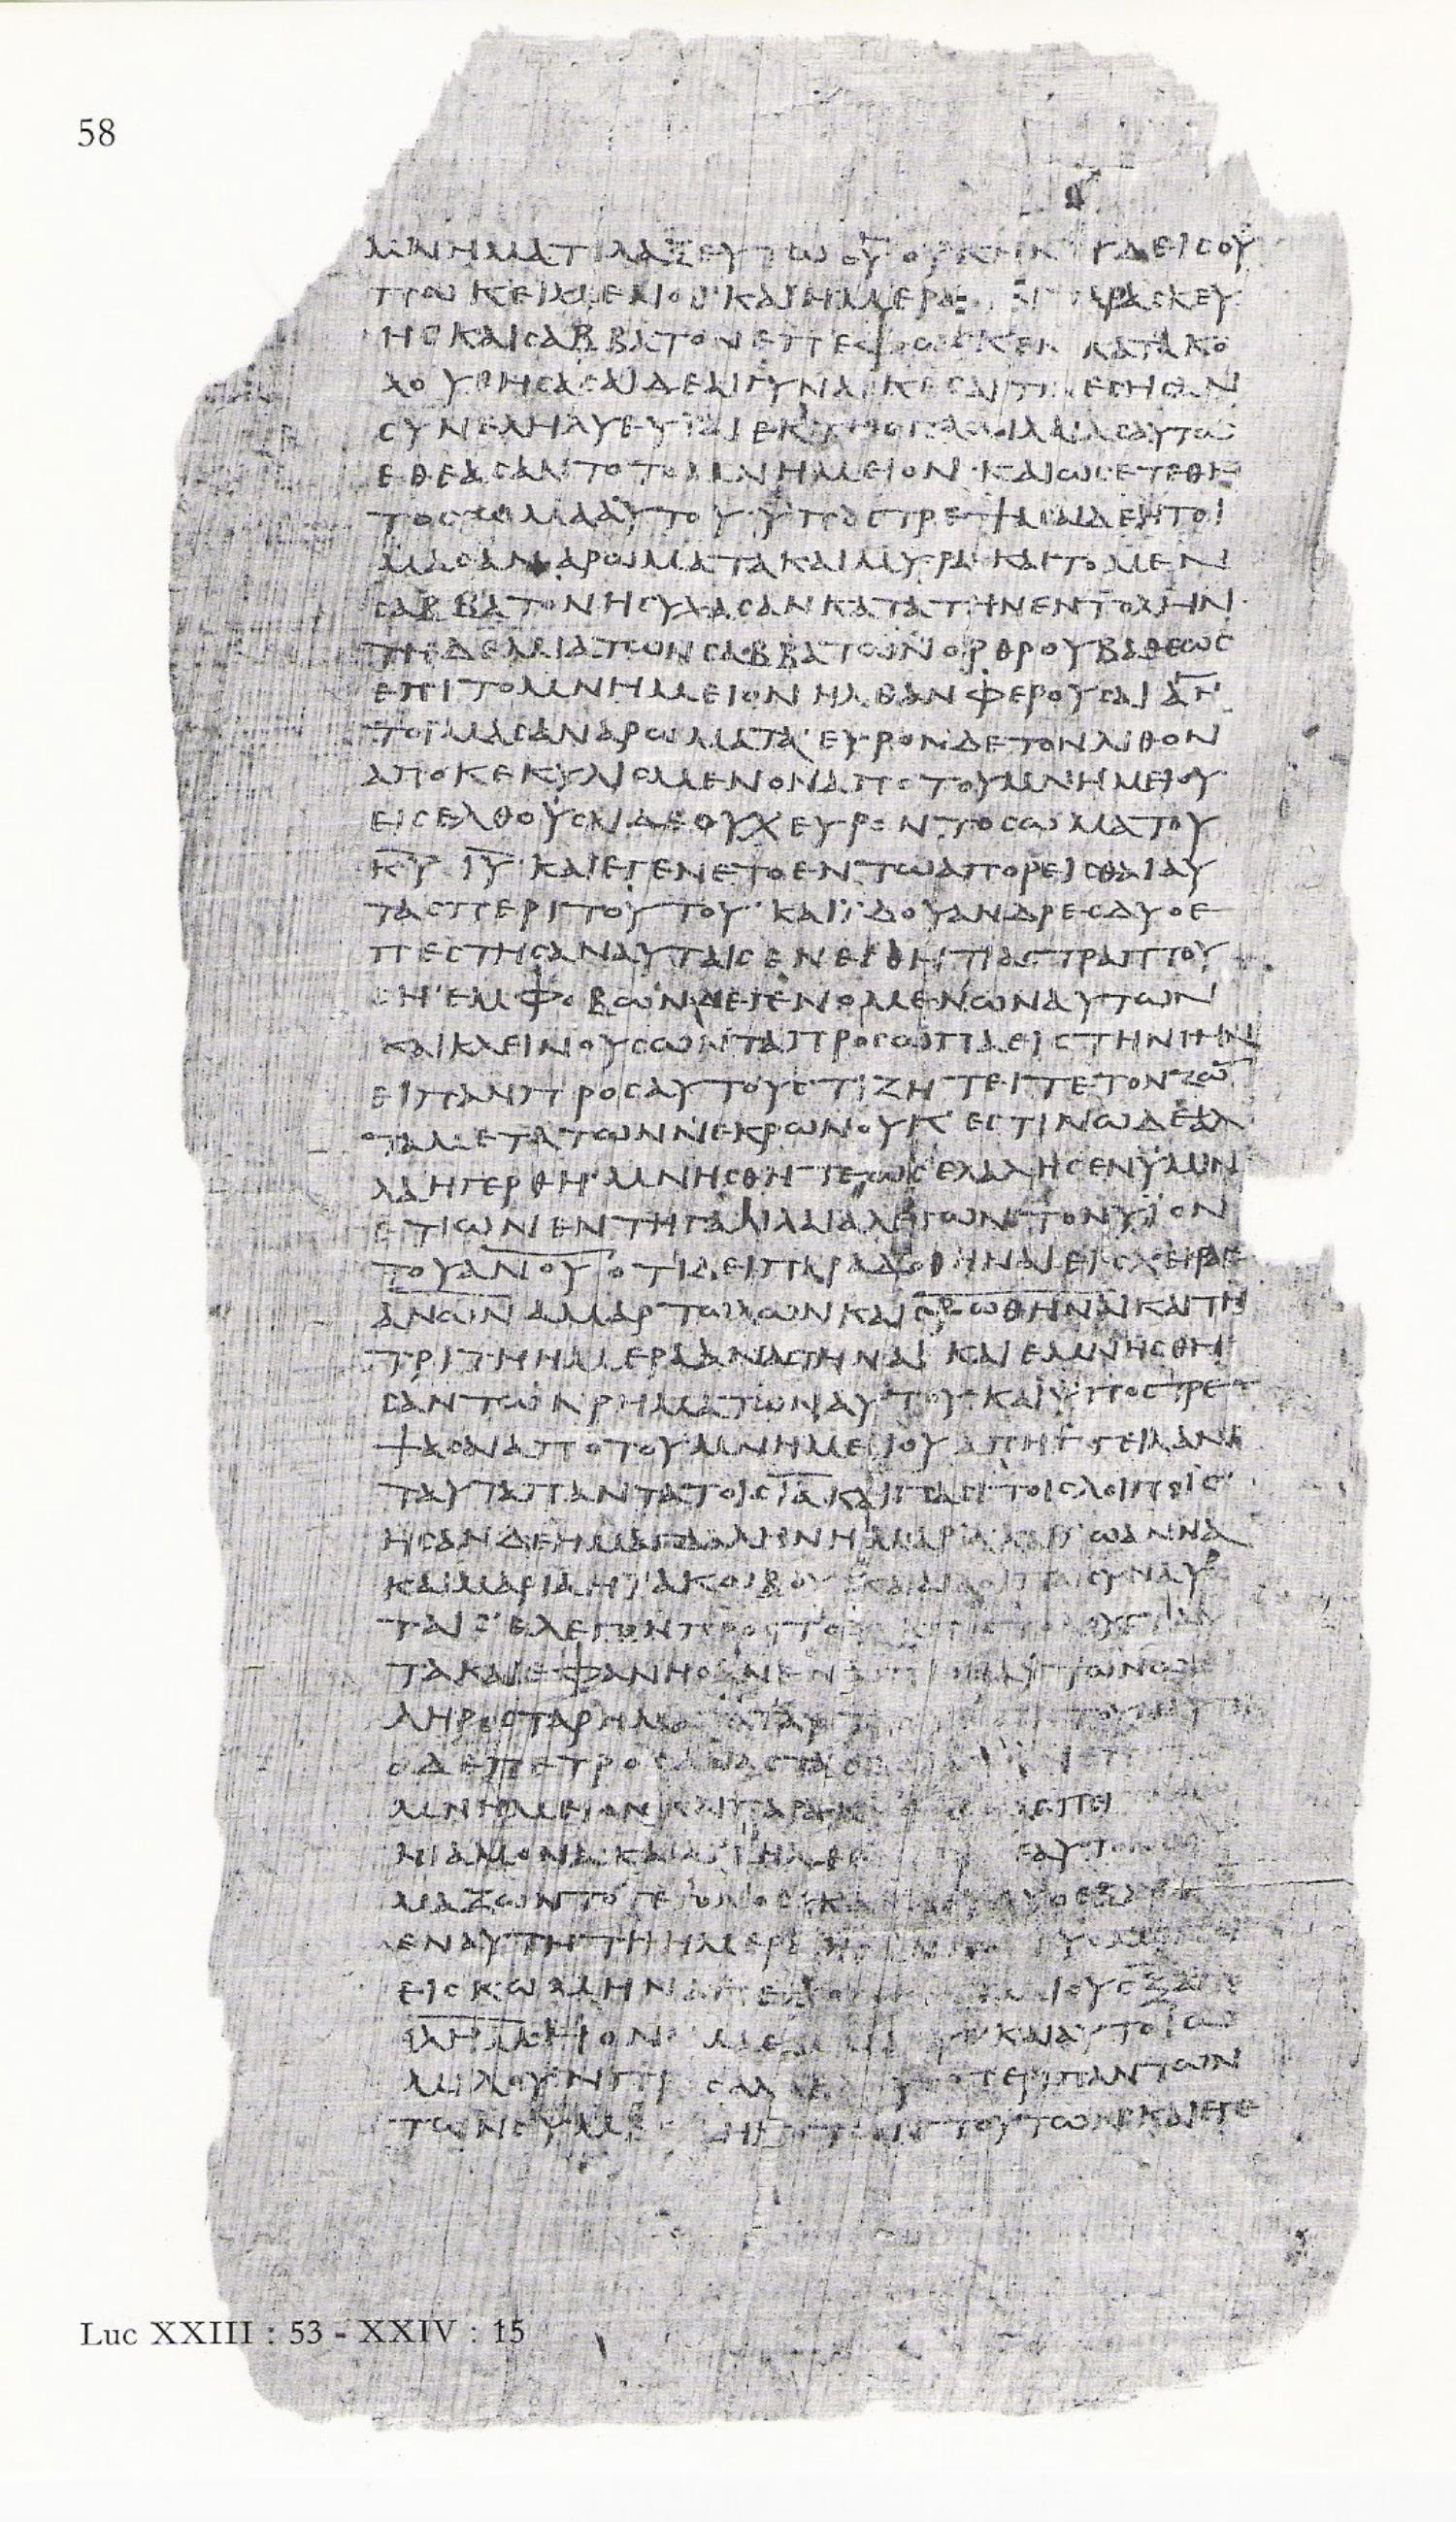 58
ΜΝΗΜΑΤΙ ΛΑΞΕΥΤΩ ΟΥ ΟΥΚ ΗΝ ΟΥΔΕΙΣ ΟΥ
ΠΩ ΚΕΙΜΕΝΟΣ ΚΑΙ ΗΜΕΡΑ ΠΑΡΑΣΚΕΥ
ΗΣ ΚΑΙ ΣΑΒΒΑΤΟΝ ΕΠΕΦΩΣΚΕΝ ΚΑΤΑΚΟ
ΛΟΥΘΗΣΑΣΑΙ ΔΕ ΑΙ ΓΥΝΑΙΚΕΣ ΑΙΤΙΝΕΣ ΗΣΑΝ
ΣΥΝΕΛΗΛΥΘΥΙΑΙ ΕΚ ΤΗΣ ΓΑΛΙΛΑΙΑΣ ΑΥΤΩ
ΕΘΕΑΣΑΝΤΟ ΤΟ ΜΝΗΜΕΙΟΝ ΚΑΙ ΩΣ ΕΤΕΘΗ
ΤΟ ΣΩΜΑ ΑΥΤΟΥ ΥΠΟΣΤΡΕΨΑΣΑΙ ΔΕ ΗΤΟΙ
ΜΑΣΑΝ ΑΡΩΜΑΤΑ ΚΑΙ ΜΥΡΑ ΚΑΙ ΤΟ ΜΕΝ
ΣΑΒΒΑΤΟΝ ΗΣΥΧΑΣΑΝ ΚΑΤΑ ΤΗΝ ΕΝΤΟΛΗΝ
ΤΗ ΔΕ ΜΙΑ ΤΩΝ ΣΑΒΒΑΤΩΝ ΟΡΘΡΟΥ ΒΑΘΕΩΣ
ΕΠΙ ΤΟ ΜΝΗΜΕΙΟΝ ΗΛΘΑΝ ΦΕΡΟΥΣΑΙ Α Η
ΤΟΙΜΑΣΑΝ ΑΡΩΜΑΤΑ ΕΥΡΟΝ ΔΕ ΤΟΝ ΛΙΘΟΝ
ΑΠΟΚΕΚΥΛΙΣΜΕΝΟΝ ΑΠΟ ΤΟΥ ΜΝΗΜΕΙΟΥ
ΕΙΣΕΛΘΟΥΣΑΙ ΔΕ ΟΥΧ ΕΥΡΟΝ ΤΟ ΣΩΜΑ ΤΟΥ
Κ̅Υ̅ Ι̅Υ̅ ΚΑΙ ΕΓΕΝΕΤΟ ΕΝ ΤΩ ΑΠΟΡΕΙΣΘΑΙ ΑΥ
ΤΑΣ ΠΕΡΙ ΤΟΥΤΟΥ ΚΑΙ ΪΔΟΥ ΑΝΔΡΕΣ ΔΥΟ Ε
ΠΕΣΤΗΣΑΝ ΑΥΤΑΙΣ ΕΝ ΕΣΘΗΤΙ ΑΣΤΡΑΠΤΟΥ
ΣΗ ΕΜΦΟΒΩΝ ΔΕ ΓΕΝΟΜΕΝΩΝ ΑΥΤΩΝ
ΚΑΙ ΚΛΕΙΝΟΥΣΩΝ ΤΑ ΠΡΟΣΩΠΑ ΕΙΣ ΤΗΝ ΓΗΝ
ΕΙΠΑΝ ΠΡΟΣ ΑΥΤΟΥΣ ΤΙ ΖΗΤΕΙΤΕ ΤΟΝ ΖΩ̅
ΤΑ ΜΕΤΑ ΤΩΝ ΝΕΚΡΩΝ ΟΥΚ ΕΣΤΙΝ ΩΔΕ ΑΛ
ΛΑ ΗΓΕΡΘΗ ΜΝΗΣΘΗΤΕ ΩΣ ΕΛΑΛΗΣΕΝ ΥΜΙΝ
ΕΤΙ ΩΝ ΕΝ ΤΗ ΓΑΛΙΛΑΙΑ ΛΕΓΩΝ ΤΟΝ ΥΪΟΝ
ΤΟΥ Α̅Ν̅Ο̅Υ̅ ΟΤΙ ΔΕΙ ΠΑΡΑΔΟΘΗΝΑΙ ΕΙΣ ΧΕΙΡΑΣ
Α̅Ν̅Ω̅Ν̅ ΑΜΑΡΤΩΛΩΝ ΚΑΙ ΣΡΩΘΗΝΑΙ ΚΑΙ ΤΗ
ΤΡΙΤΗ ΗΜΕΡΑ ΑΝΑΣΤΗΝΑΙ ΚΑΙ ΕΜΝΗΣΘΗ
ΣΑΝ ΤΩΝ ΡΗΜΑΤΩΝ ΑΥΤΟΥ ΚΑΙ ΥΠΟΣΤΡΕ
ΨΑΣΑΙ ΑΠΟ ΤΟΥ ΜΝΗΜΕΙΟΥ ΑΠΗΓΓΕΙΛΑΝ
ΤΑΥΤΑ ΠΑΝΤΑ ΤΟΙΣ Ι̅Α̅ ΚΑΙ ΠΑΣΙ ΤΟΙΣ ΛΟΙΠΟΙΣ
ΗΣΑΝ ΔΕ Η ΜΑΓΔΑΛΗΝΗ ΜΑΡΙΑ ΚΑΙ ΪΩΑΝΝΑ
ΚΑΙ ΜΑΡΙΑ Η ΪΑΚΩΒΟΥ ΚΑΙ ΑΙ ΛΟΙΠΑΙ ΣΥΝ ΑΥ
ΤΑΙΣ ΕΛΕΓΟΝ ΠΡΟΣ ΤΟΥΣ
ΤΑ ΚΑΙ ΕΦΑΝΗΣΑΝ ΕΝΩΠΙΟΝ ΑΥΤΩΝ ΩΣ
ΛΗΡΟΣ ΤΑ ΡΗΜΑΤΑ ΤΑΥΤΑ
Ο ΔΕ ΠΕΤΡΟΣ ΑΝΑΣΤΑΣ
ΜΝΗΜΕΙΟΝ ΚΑΙ ΠΑΡΑΚ ΒΛΕΠΕΙ
ΜΟΝΑ ΚΑΙ ΑΠΗΛΘΕ ΕΑΥΤΟΝ
ΜΑΖΩΝ ΤΟ ΓΕΓΟΝΟΣ ΚΑΙ ΔΥΟ ΕΞ
ΕΝ ΑΥΤΗ ΤΗ ΗΜΕΡΑ
ΕΙΣ ΚΩΜΗΝ
Ι̅Λ̅Η̅Μ̅ ΚΑΙ ΑΥΤΟΙ Ω
ΜΙΛΟΥΝ ΠΡ ΠΑΝΤΩΝ
ΤΩΝ ΣΥΜΒΕ ΤΟΥΤΩΝ ΚΑΙ ΕΓΕ
Luc XXIII : 53 - XXIV : 15